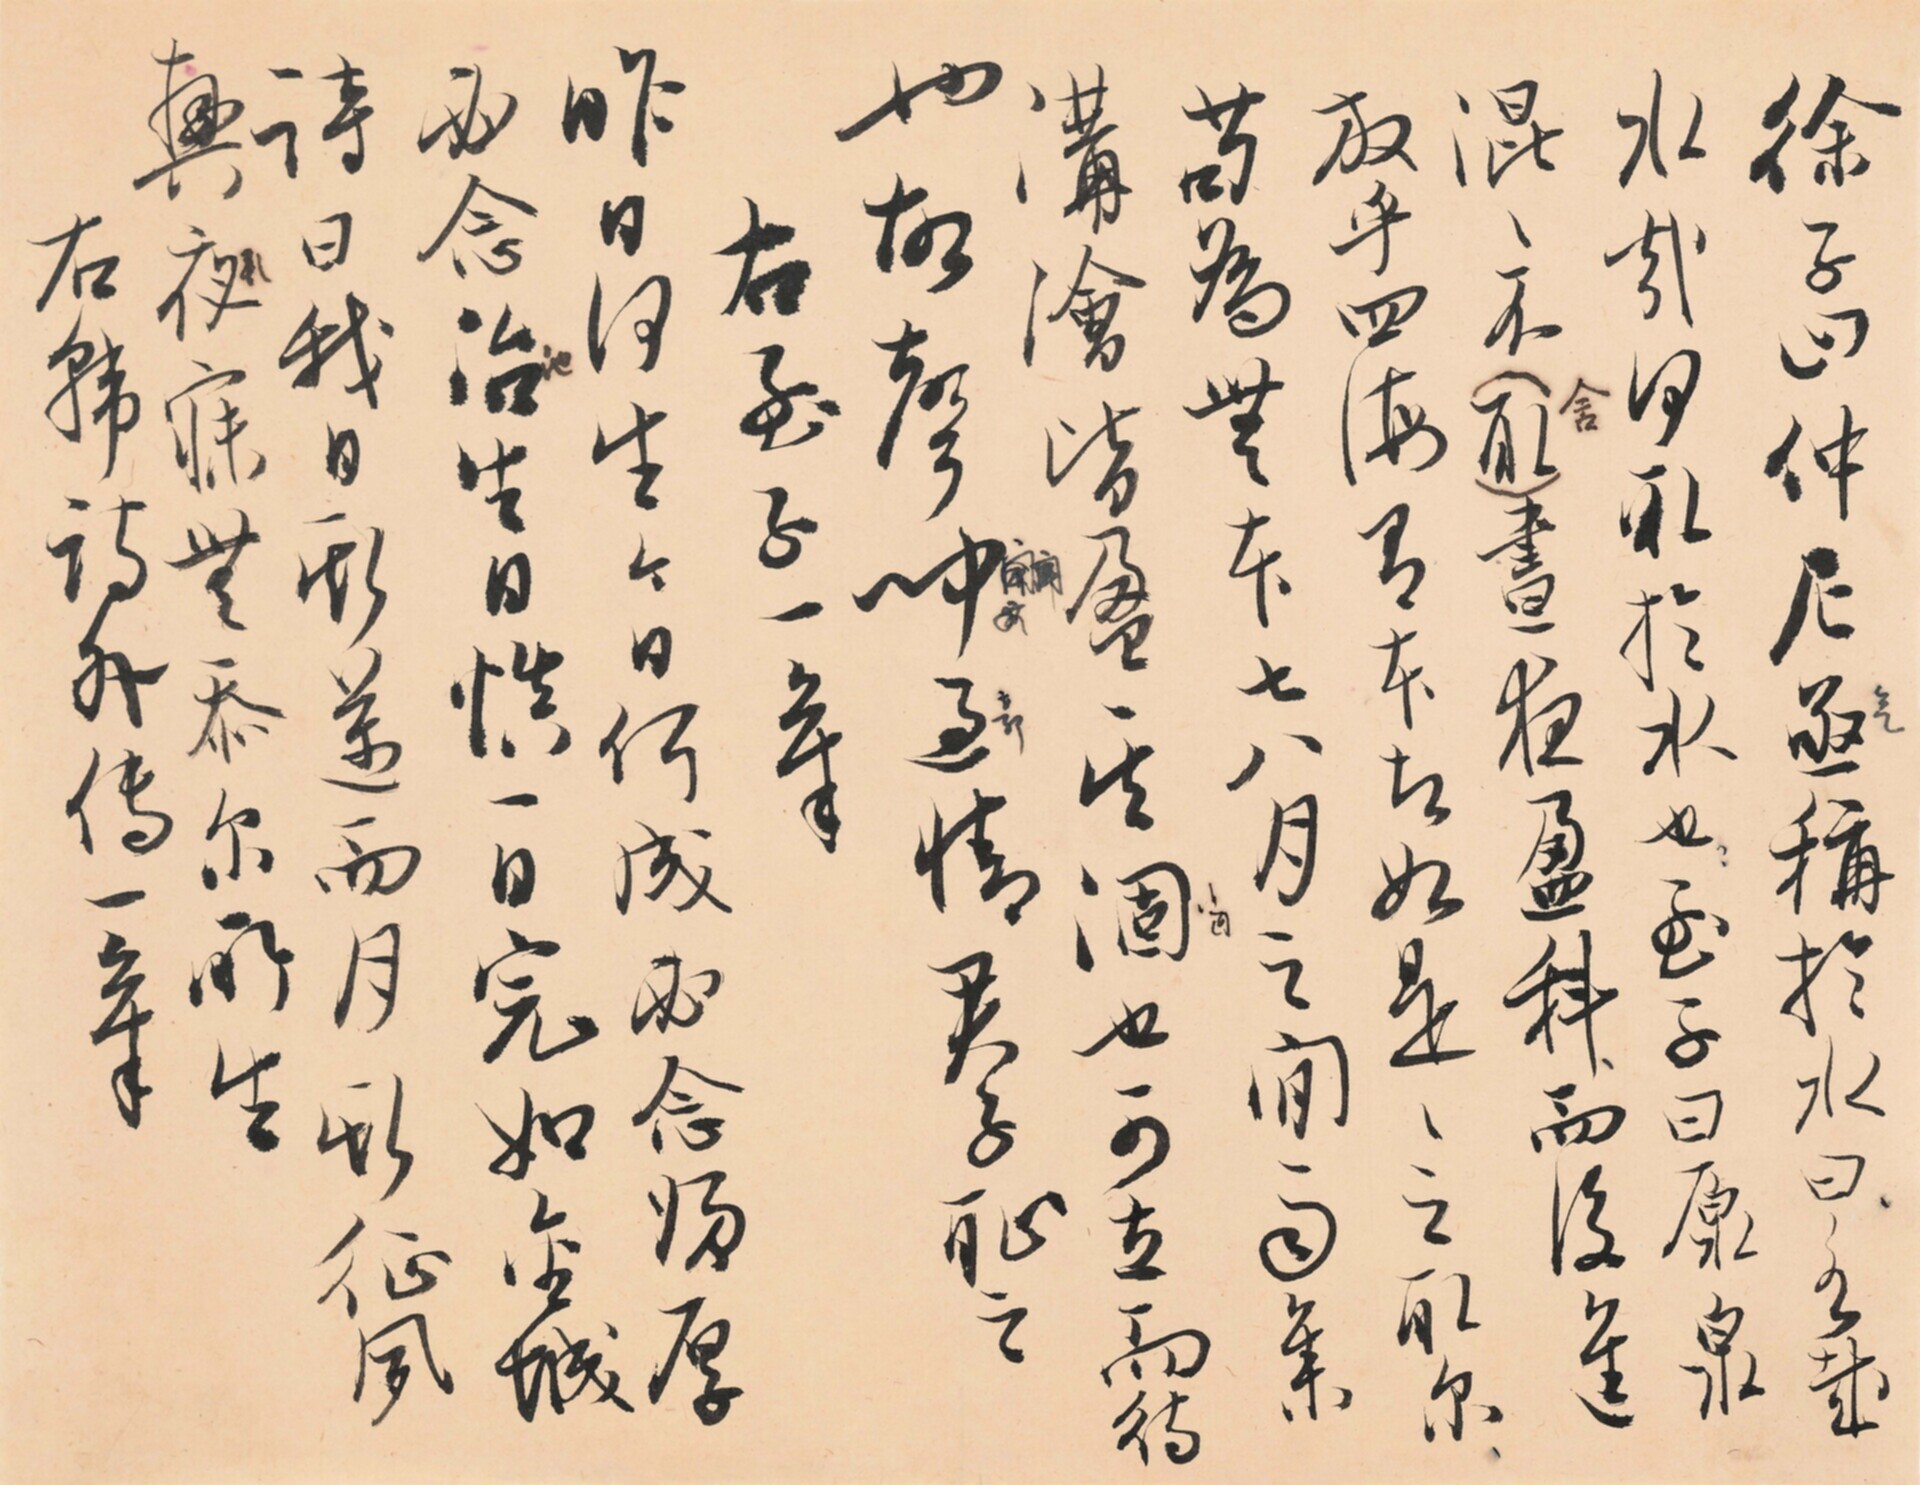 徐子曰仲尼亟稱於水曰水哉
水哉何取於水也孟子曰原泉
混〻不(取)晝夜盈科而後進
舍
放乎四海有本者如是〻之取尔
苟為無本七八月之間雨集
溝澮皆盈其涸也可立而待
也故聲聞過情君子恥之
右孟子一章
昨日何生今日何成必念歸厚
必念治生日慎一日完如金城
詩曰我日斯邁而月斯征夙
興夜寐無忝尔所生
右韓詩外傳一章